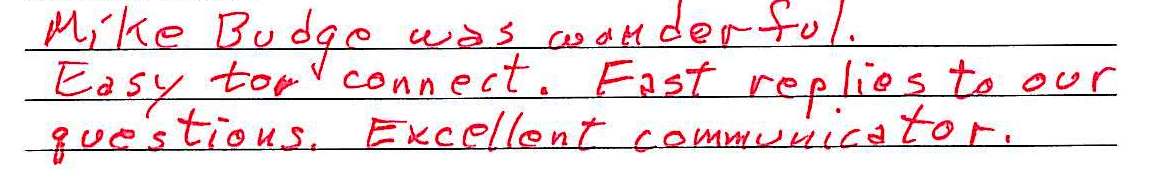 Mike Budge was wonderful.
Easy to connect. Fast replies to our
questions. Excellent communicator.